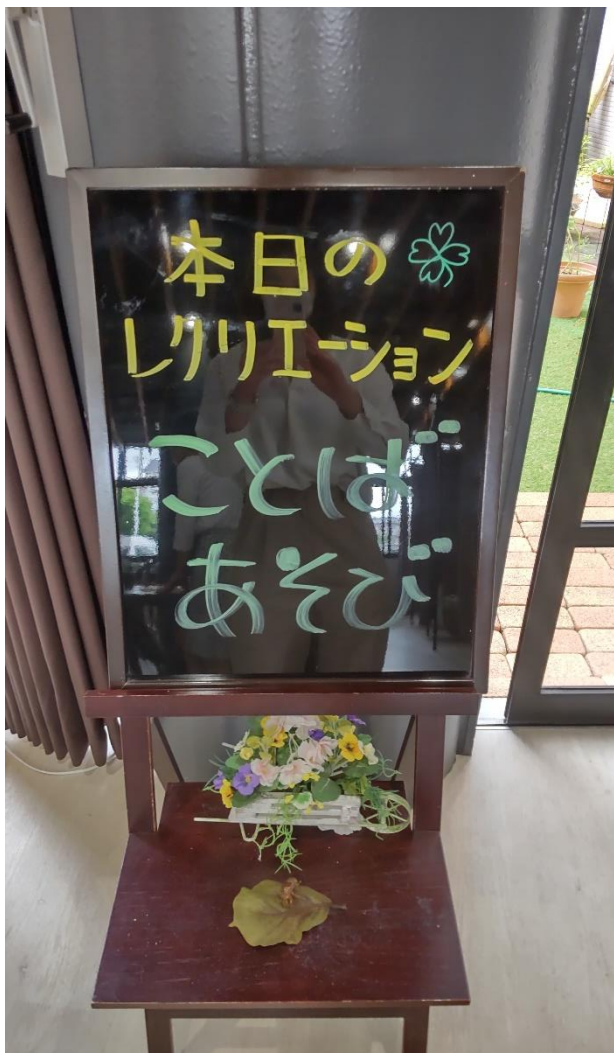 本日の
レクリエーション
ことば
あそび